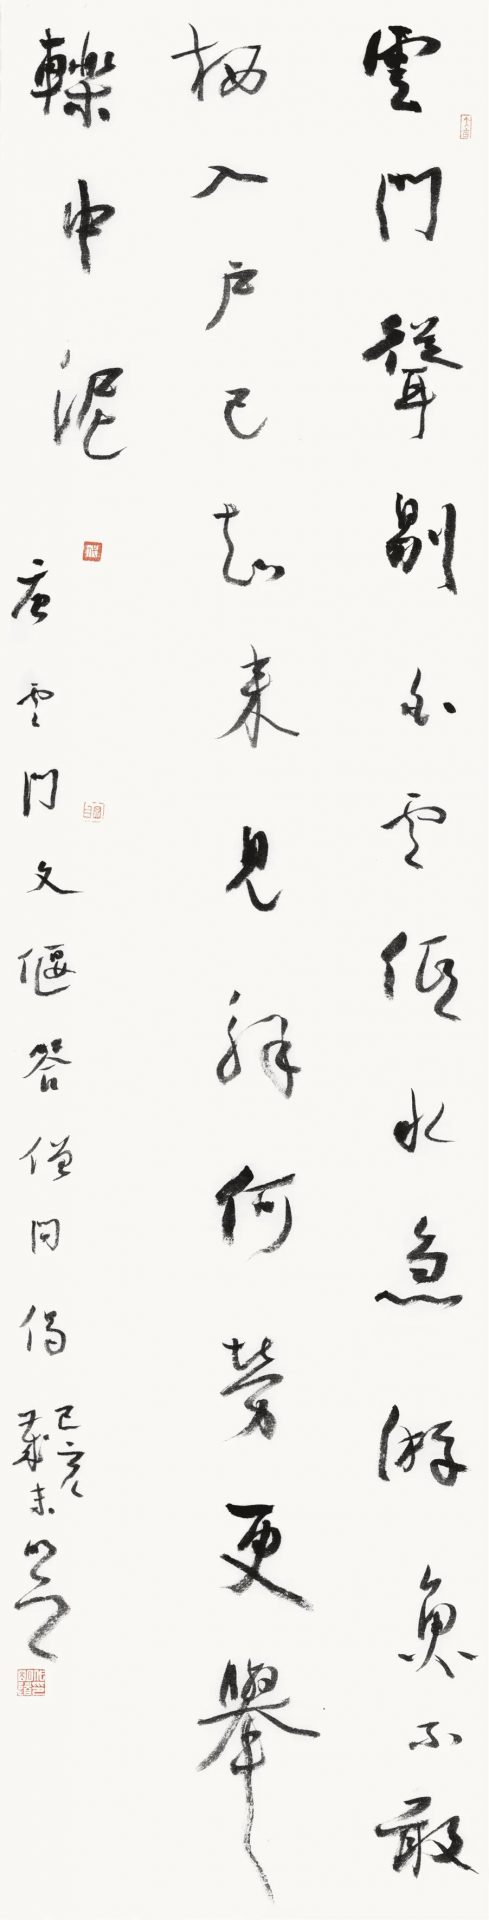 雲門聳剔白雲低水急游魚不敢
栖入户已知来見解何勞更舉
轢中泥
唐雲門文偃答僧問偈
己亥
歲末